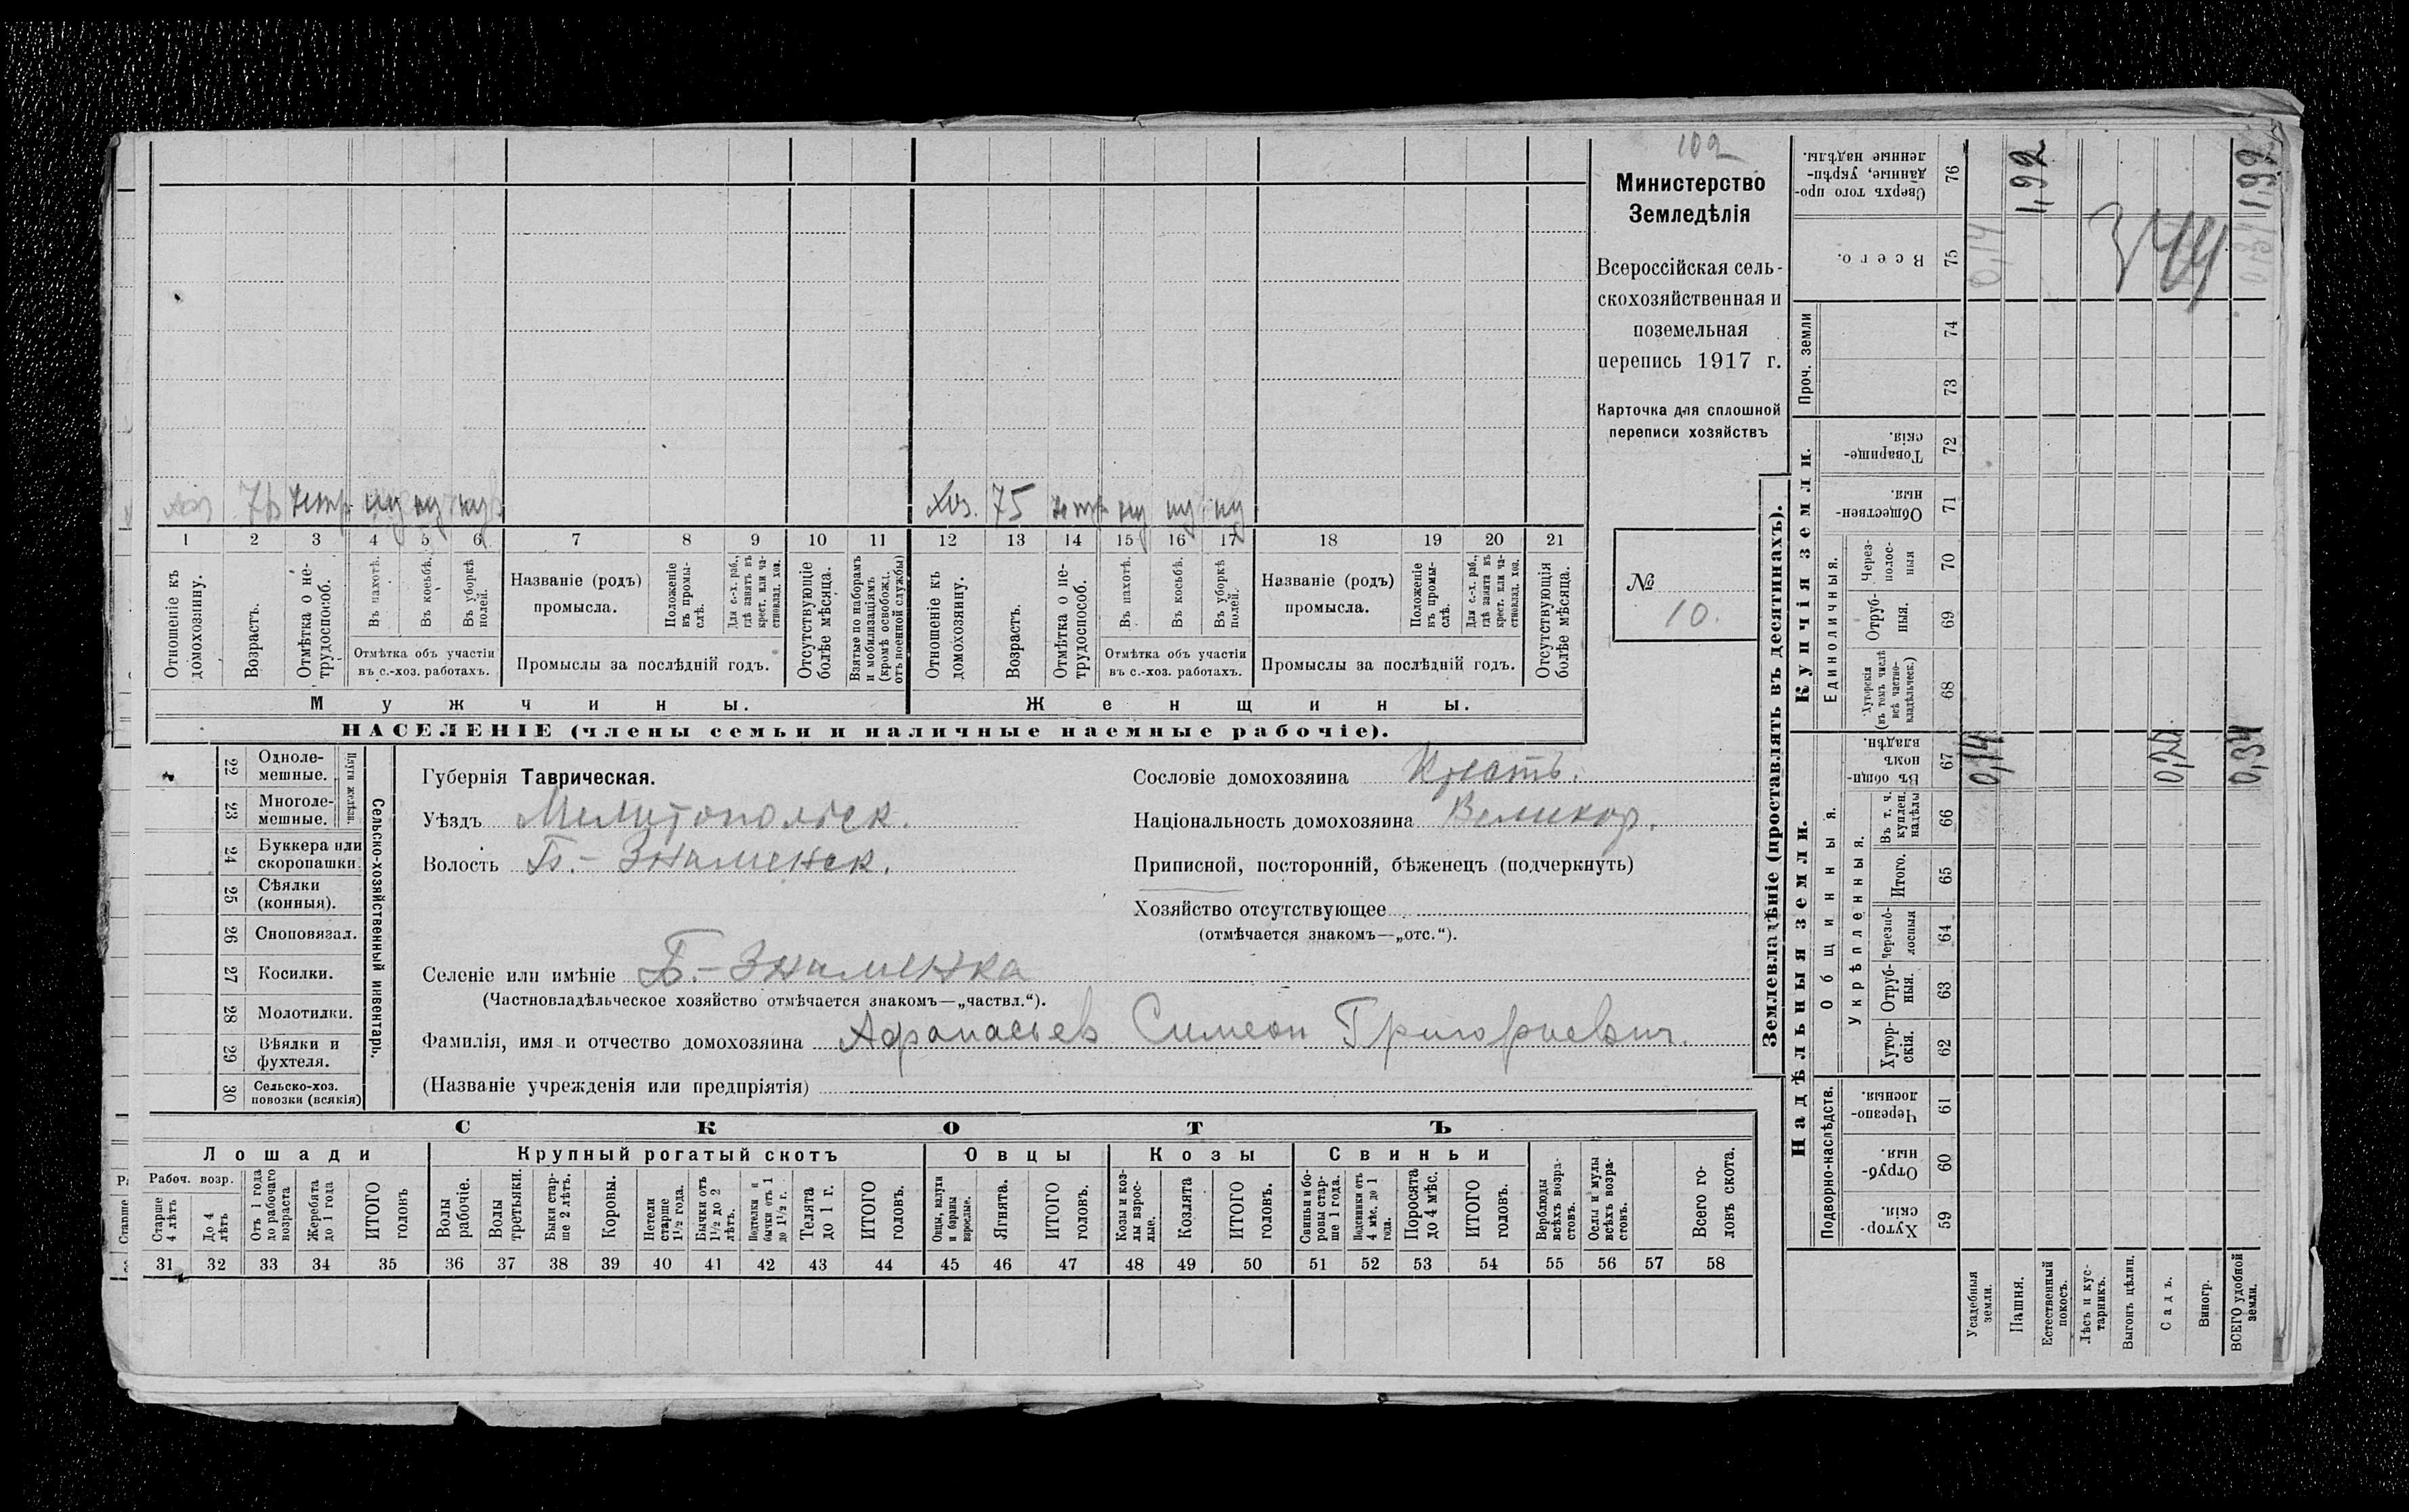 102
Министерство
Земледѣлія
Всероссійская сель-
скохозяйственная и
поземельная
перепись 1917 г.
Карточка для сплошной
переписи хозяйствъ
№
10.
хоз 76 нетр ну ну ну
хоз. 75 нетр ну ну ну
1 2 3 4 5 6 7 8 9 10 11 12 13 14 15 16 17 18 19 20 21
Отношеніе къ домохозяину.
Возрастъ.
Отмѣтка о не-трудоспособ.
Въ пахотѣ.
Въ косьбѣ.
Въ уборкѣ полей.
Отмѣтка объ участіи
въ с.-хоз. работахъ.
Названіе (родъ)
промысла.
Положеніе въ промы-слѣ.
Для с.-х. раб., гдѣ занятъ въ крест. или ча-стновлад. хоз.
Промыслы за послѣдній годъ.
Отсутствующіе болѣе мѣсяца.
Взятые по наборамъ и мобилизаціямъ (кромѣ освобожд. отъ военной службы)
Отношеніе къ домохозяину.
Возрастъ.
Отмѣтка о не-трудоспособ.
Въ пахотѣ.
Въ косьбѣ.
Въ уборкѣ полей.
Отмѣтка объ участіи
въ с.-хоз. работахъ.
Названіе (родъ)
промысла.
Положеніе въ промы-слѣ.
Для с.-х. раб., гдѣ занята въ крест. или ча-стновлад. хоз.
Промыслы за послѣдній годъ.
Отсутствующія болѣе мѣсяца.
Мужчины.
Женщины.
НАСЕЛЕНІЕ (члены семьи и наличные наемные рабочіе).
22 Одноле-мешные.
23 Многоле-мешные.
Плуги желѣзн.
24 Буккера или скоропашки
25 Сѣялки (конныя).
26 Сноповязал.
27 Косилки.
28 Молотилки.
29 Вѣялки и фухтеля.
30 Сельско-хоз. повозки (всякія)
Сельско-хозяйственный инвентарь.
Губернія Таврическая.
Уѣздъ Мелитопольск.
Волость Б.-Знаменск.
Сословіе домохозяина Крестъ.
Національность домохозяина Великор.
Приписной, посторонній, бѣженецъ (подчеркнуть)
Хозяйство отсутствующее
(отмѣчается знакомъ—„отс.“).
Селеніе или имѣніе Б.-Знаменка
(Частновладѣльческое хозяйство отмѣчается знакомъ—„частвл.“).
Фамилія, имя и отчество домохозяина Афанасьев Симеон Григорьевич.
(Названіе учрежденія или предпріятія)
СКОТЪ
Лошади
Крупный рогатый скотъ
Овцы
Козы
Свиньи
Рабоч. возр.
Старше 4 лѣтъ
До 4 лѣтъ
Отъ 1 года до рабочаго возраста
Жеребята до 1 года
ИТОГО головъ
Волы рабочіе.
Волы третьяки.
Быки стар-ше 2 лѣтъ.
Коровы.
Нетели старше 1½ года.
Бычки отъ 1½ до 2 лѣтъ.
Подтелки и бычки отъ 1 до 1½ г.
Телята до 1 г.
ИТОГО головъ.
Овцы, валухи и бараны взрослые.
Ягнята.
ИТОГО головъ.
Козы и коз-лы взрос-лые.
Козлята
ИТОГО головъ.
Свиньи и бо-ровы стар-ше 1 года.
Подсвинки отъ 4 мѣс. до 1 года.
Поросята до 4 мѣс.
ИТОГО головъ.
Верблюды всѣхъ возра-стовъ.
Ослы и мулы всѣхъ возра-стовъ.
Всего го-ловъ скота.
31 32 33 34 35 36 37 38 39 40 41 42 43 44 45 46 47 48 49 50 51 52 53 54 55 56 57 58
Землевладѣніе (проставлять въ десятинахъ).
Надѣльныя земли.
Купчія земли.
Проч. земли
Подворно-наслѣдств.
Общинныя.
Укрѣпленныя.
Единоличныя.
Хутор-скія. 59
Отруб-ныя. 60
Черезпо-лосныя. 61
Хутор-скія. 62
Отруб-ныя. 63
Черезпо-лосныя 64
Итого. 65
Въ т. ч. куплен. надѣлы 66
Въ общин-номъ владѣн. 67
Хуторскія (въ томъ числѣ всѣ частно-владѣльческ.) 68
Отруб-ныя. 69
Через-полос-ныя 70
Обществен-ныя. 71
Товарище-скія. 72
73
74
Всего. 75
Сверхъ того про-данные, укрѣп-ленные надѣлы. 76
Усадебныя земли.
Пашня.
Естественный покосъ.
Лѣсъ и кус-тарникъ.
Выгонъ цѣлин.
Садъ.
Виногр.
ВСЕГО удобной земли.
0,14
0,20
0,34
0,14
1,92
0,34
1,92
344